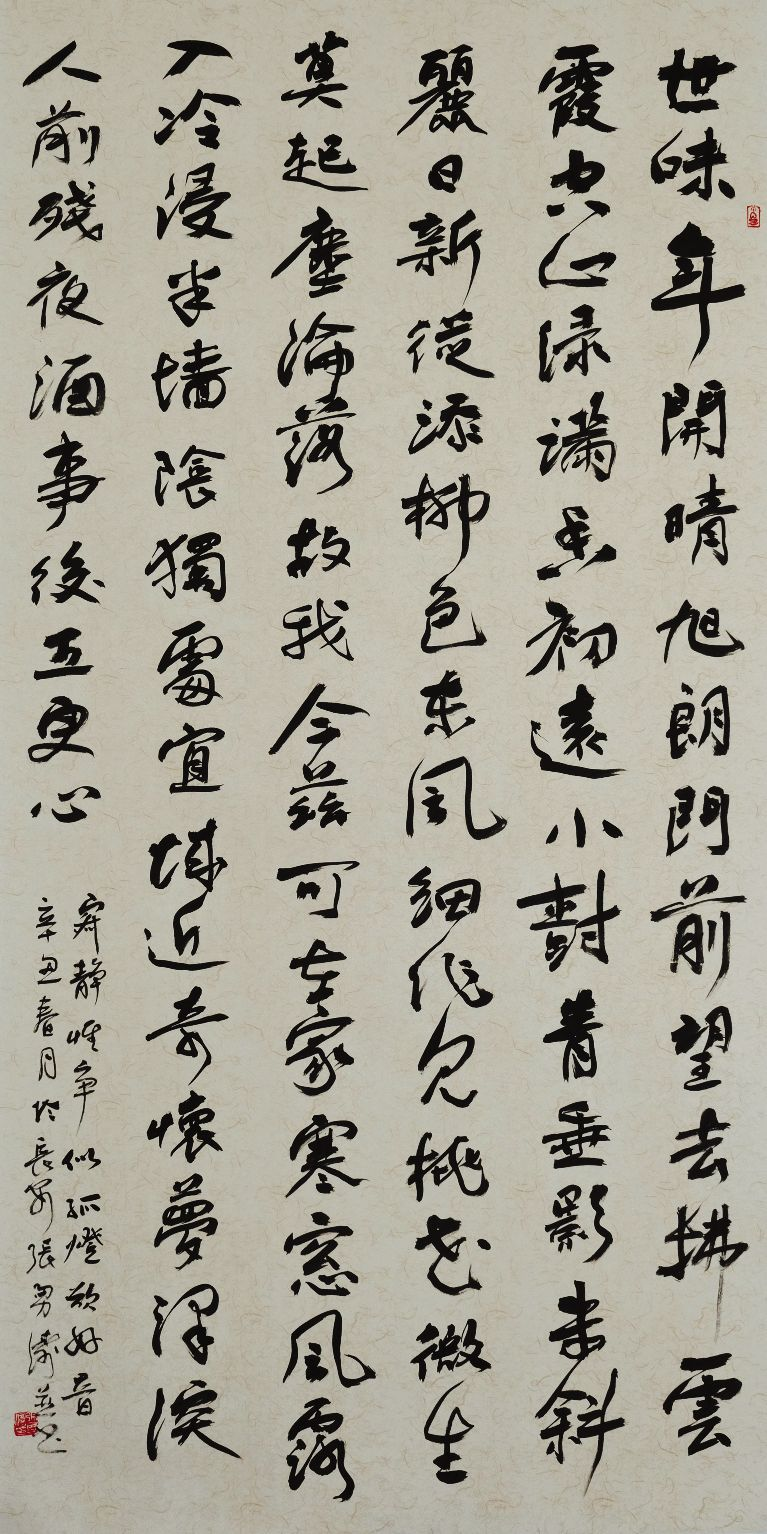 世味年開晴旭朗門前望去拂雲
霞空心绿满香初遠小對菁垂影未斜
麗日新從添柳色東風細作見桃花微生
莫起塵淪落故我今茲可在家寒窓風露
入冷浸半墙陰獨處宜城近奇懷夢澤深
人前殘夜酒事後五更心
寂静惟争似孤燈欲好音
辛丑春月於長安張勇濤並書